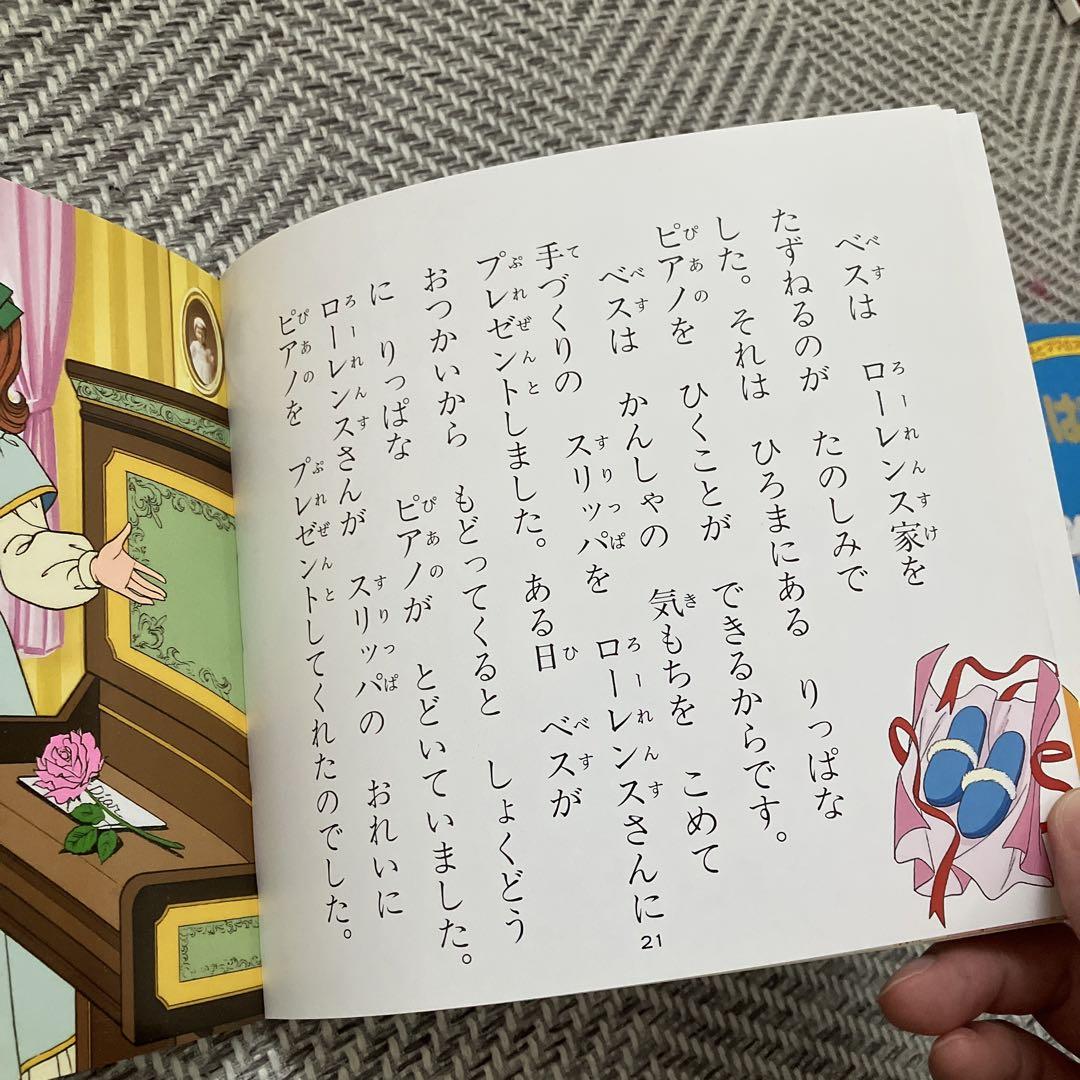 ベスは ローレンス家を
たずねるのが たのしみで
した。それは ひろまにある りっぱな
ピアノを ひくことが できるからです。
ベスは かんしゃの 気もちを こめて
手づくりの スリッパを ローレンスさんに
プレゼントしました。ある日 ベスが
おつかいから もどってくると しょくどう
に りっぱな ピアノが とどいていました。
ローレンスさんが スリッパの おれいに
ピアノを プレゼントしてくれたのでした。
21
Diary
は